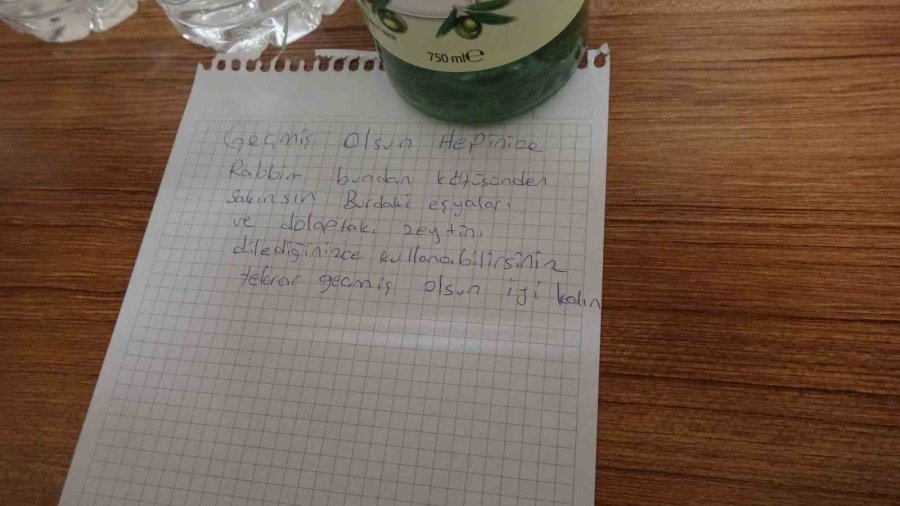 750 ml℮
Geçmiş Olsun Hepinize
Rabbim bundan kötüsünden
sakınsın Burdaki eşyaları
ve dolaptaki zeytini
dilediğinizce kullanabilirsiniz
tekrar geçmiş olsun iyi kalın